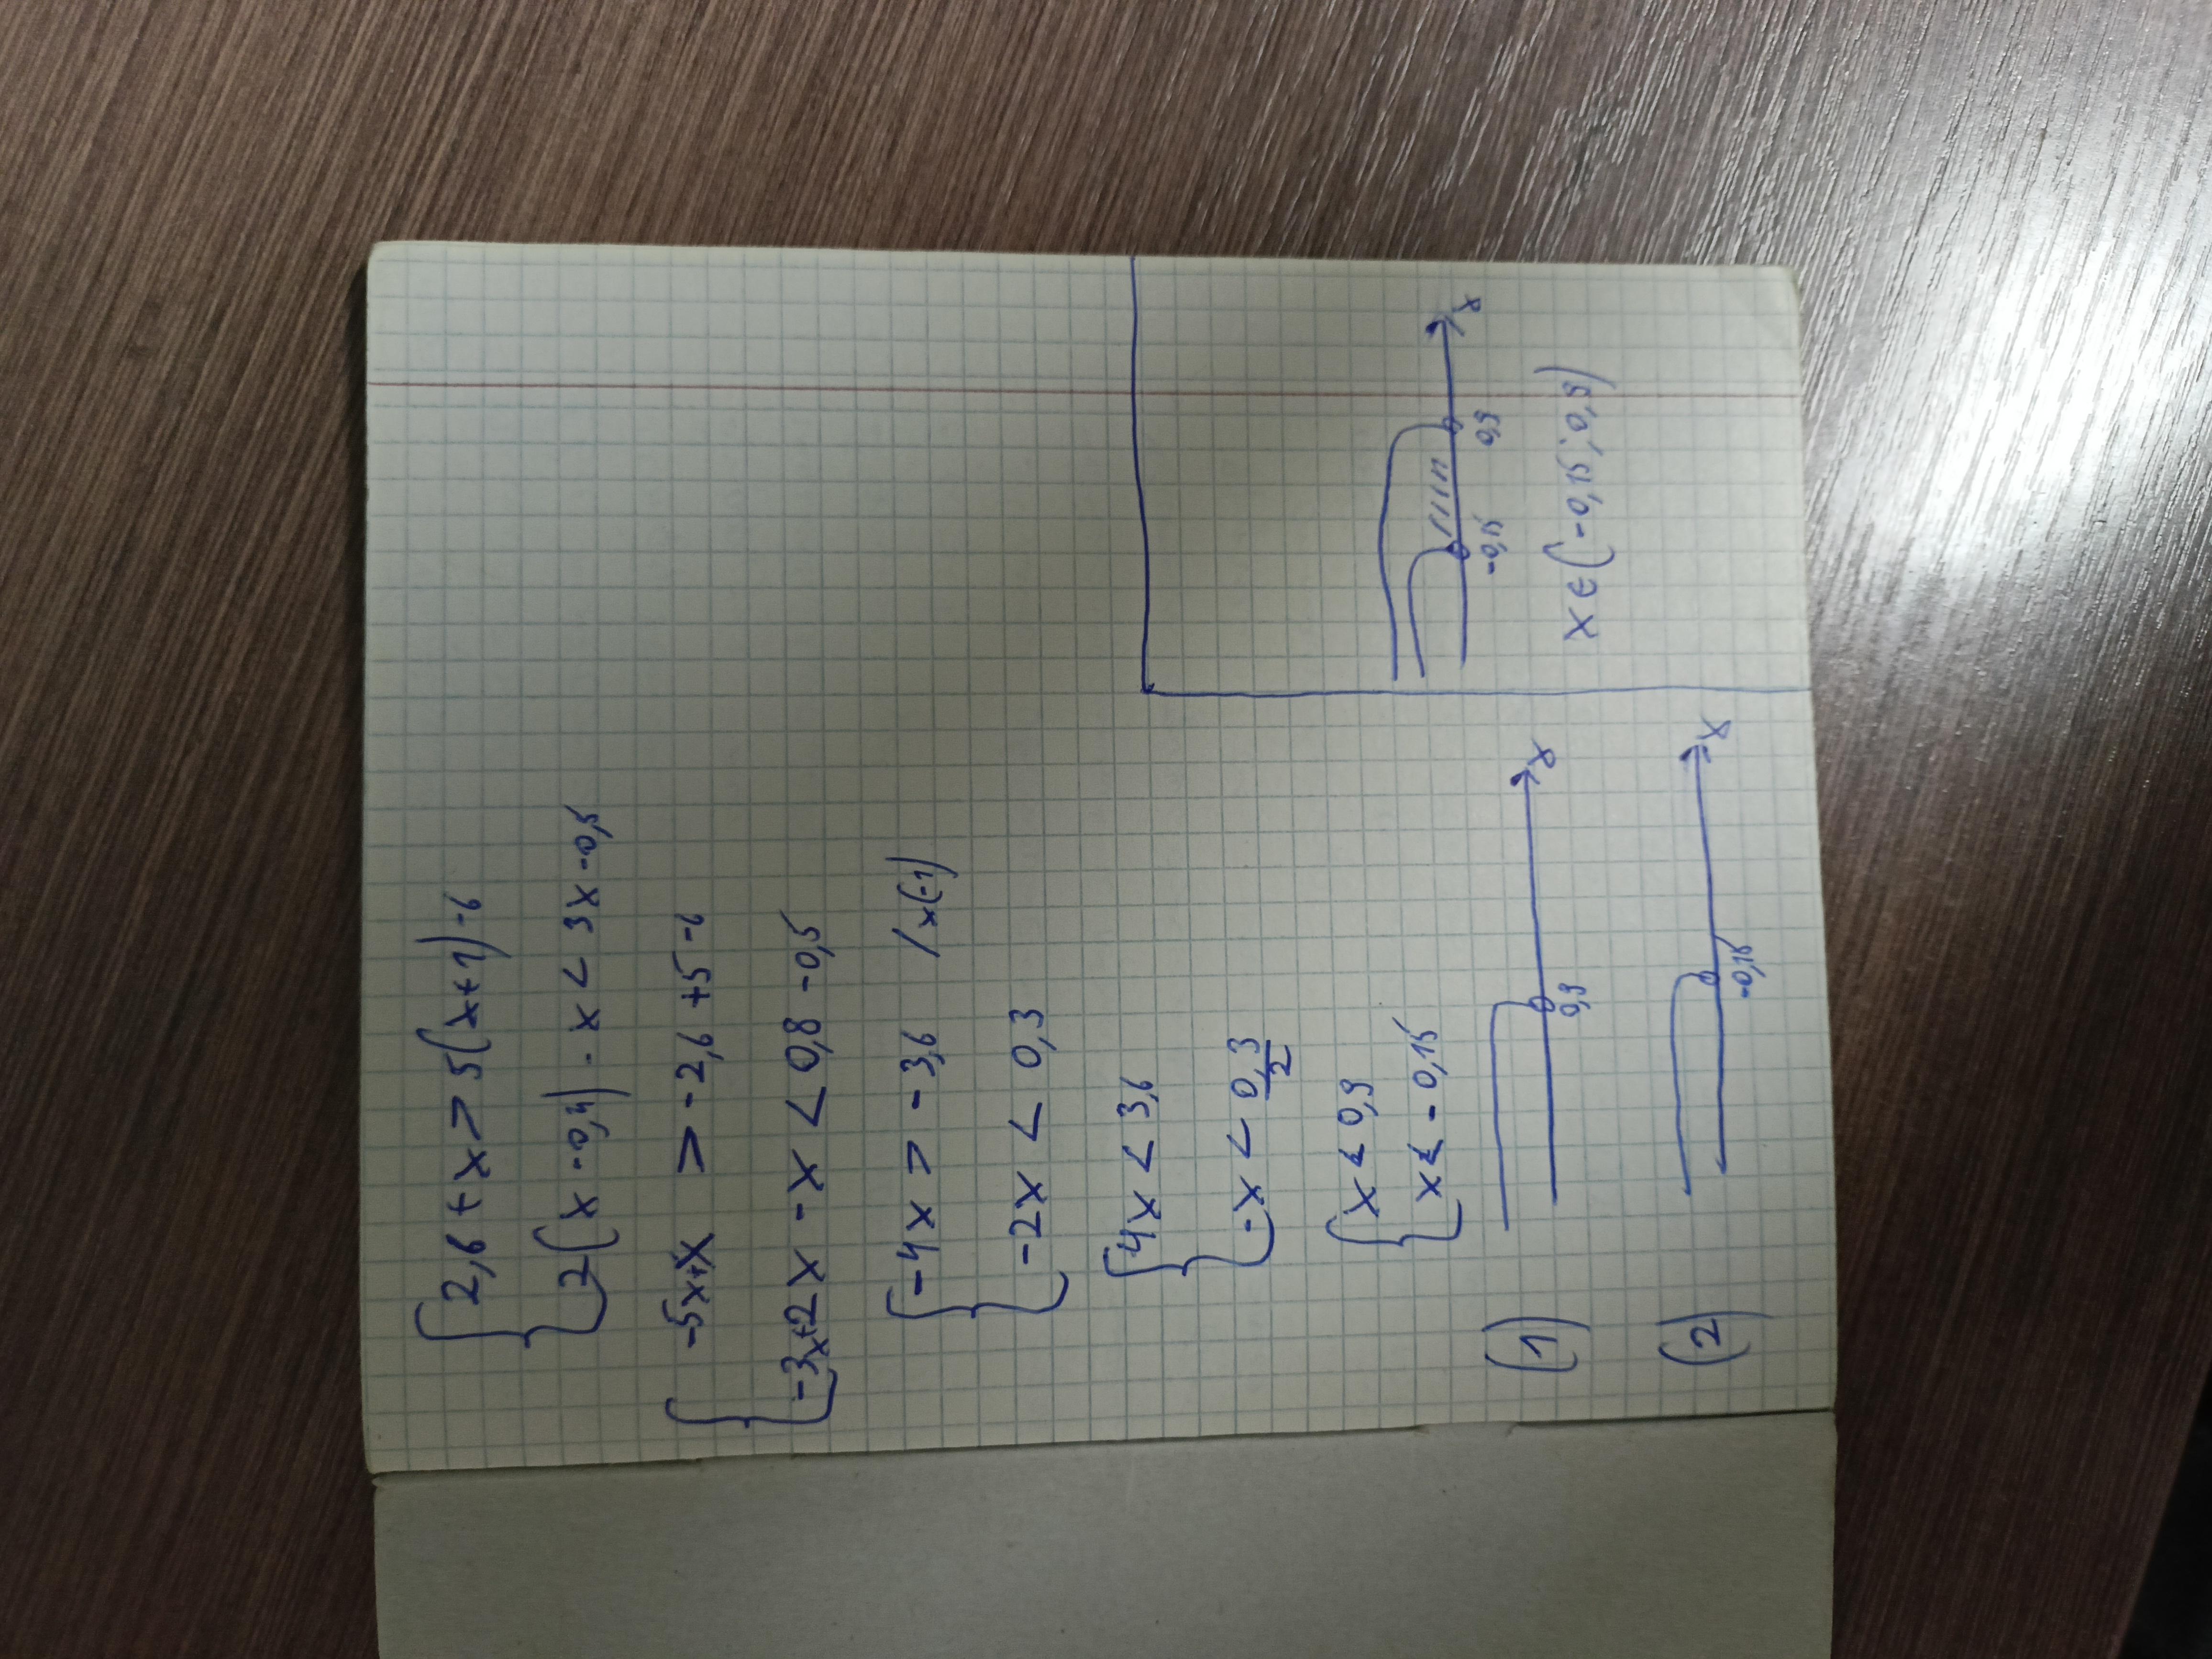 2,6 + x > 5(x+1) -6
2(x -0,4) - x < 3x -0,5
-5x+x > -2,6 +5 -6
-3x+2x -x < 0,8 -0,5
-4x > -3,6 /x(-1)
-2x < 0,3
4x < 3,6
-x < 0,3/2
x < 0,9
x < -0,15
(1) 0,9 x
(2) -0,15 x
-0,15 0,9 x
x ∈ (-0,15; 0,9)